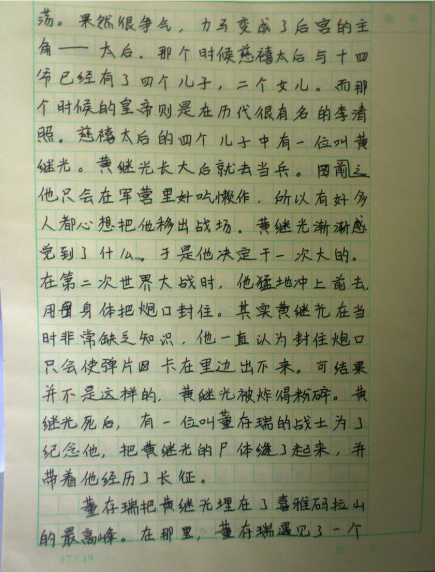 荡。果然很争气，力马变成了后宫的主
角——太后．那个时候慈禧太后与十四
爷已经有了四个儿子，二个女儿。而那
个时候的皇帝则是在历代很有名的李清
照。慈禧太后的四个儿子中有一位叫黄
继光。黄继光长大后就去当兵。因前之
他只会在军营里好吃懒作，所以有好多
人都心想把他移出战场。黄继光渐渐感
觉到了什么。于是他决定干一次大的。
在第二次世界大战时，他猛地冲上前去，
用身体把炮口封住。其实黄继光在当
时非常缺乏知识，他一直认为封住炮口
只会使弹片卡在里边出不来。可结果
并不是这样的，黄继光被炸得粉碎。黄
继光死后，有一位叫董存瑞的战士为了
纪念他，把黄继光的尸体缝了起来，并
带着他经历了长征。
董存瑞把黄继光埋在了喜雅码拉山
的最高峰。在那里，董存瑞遇见了一个